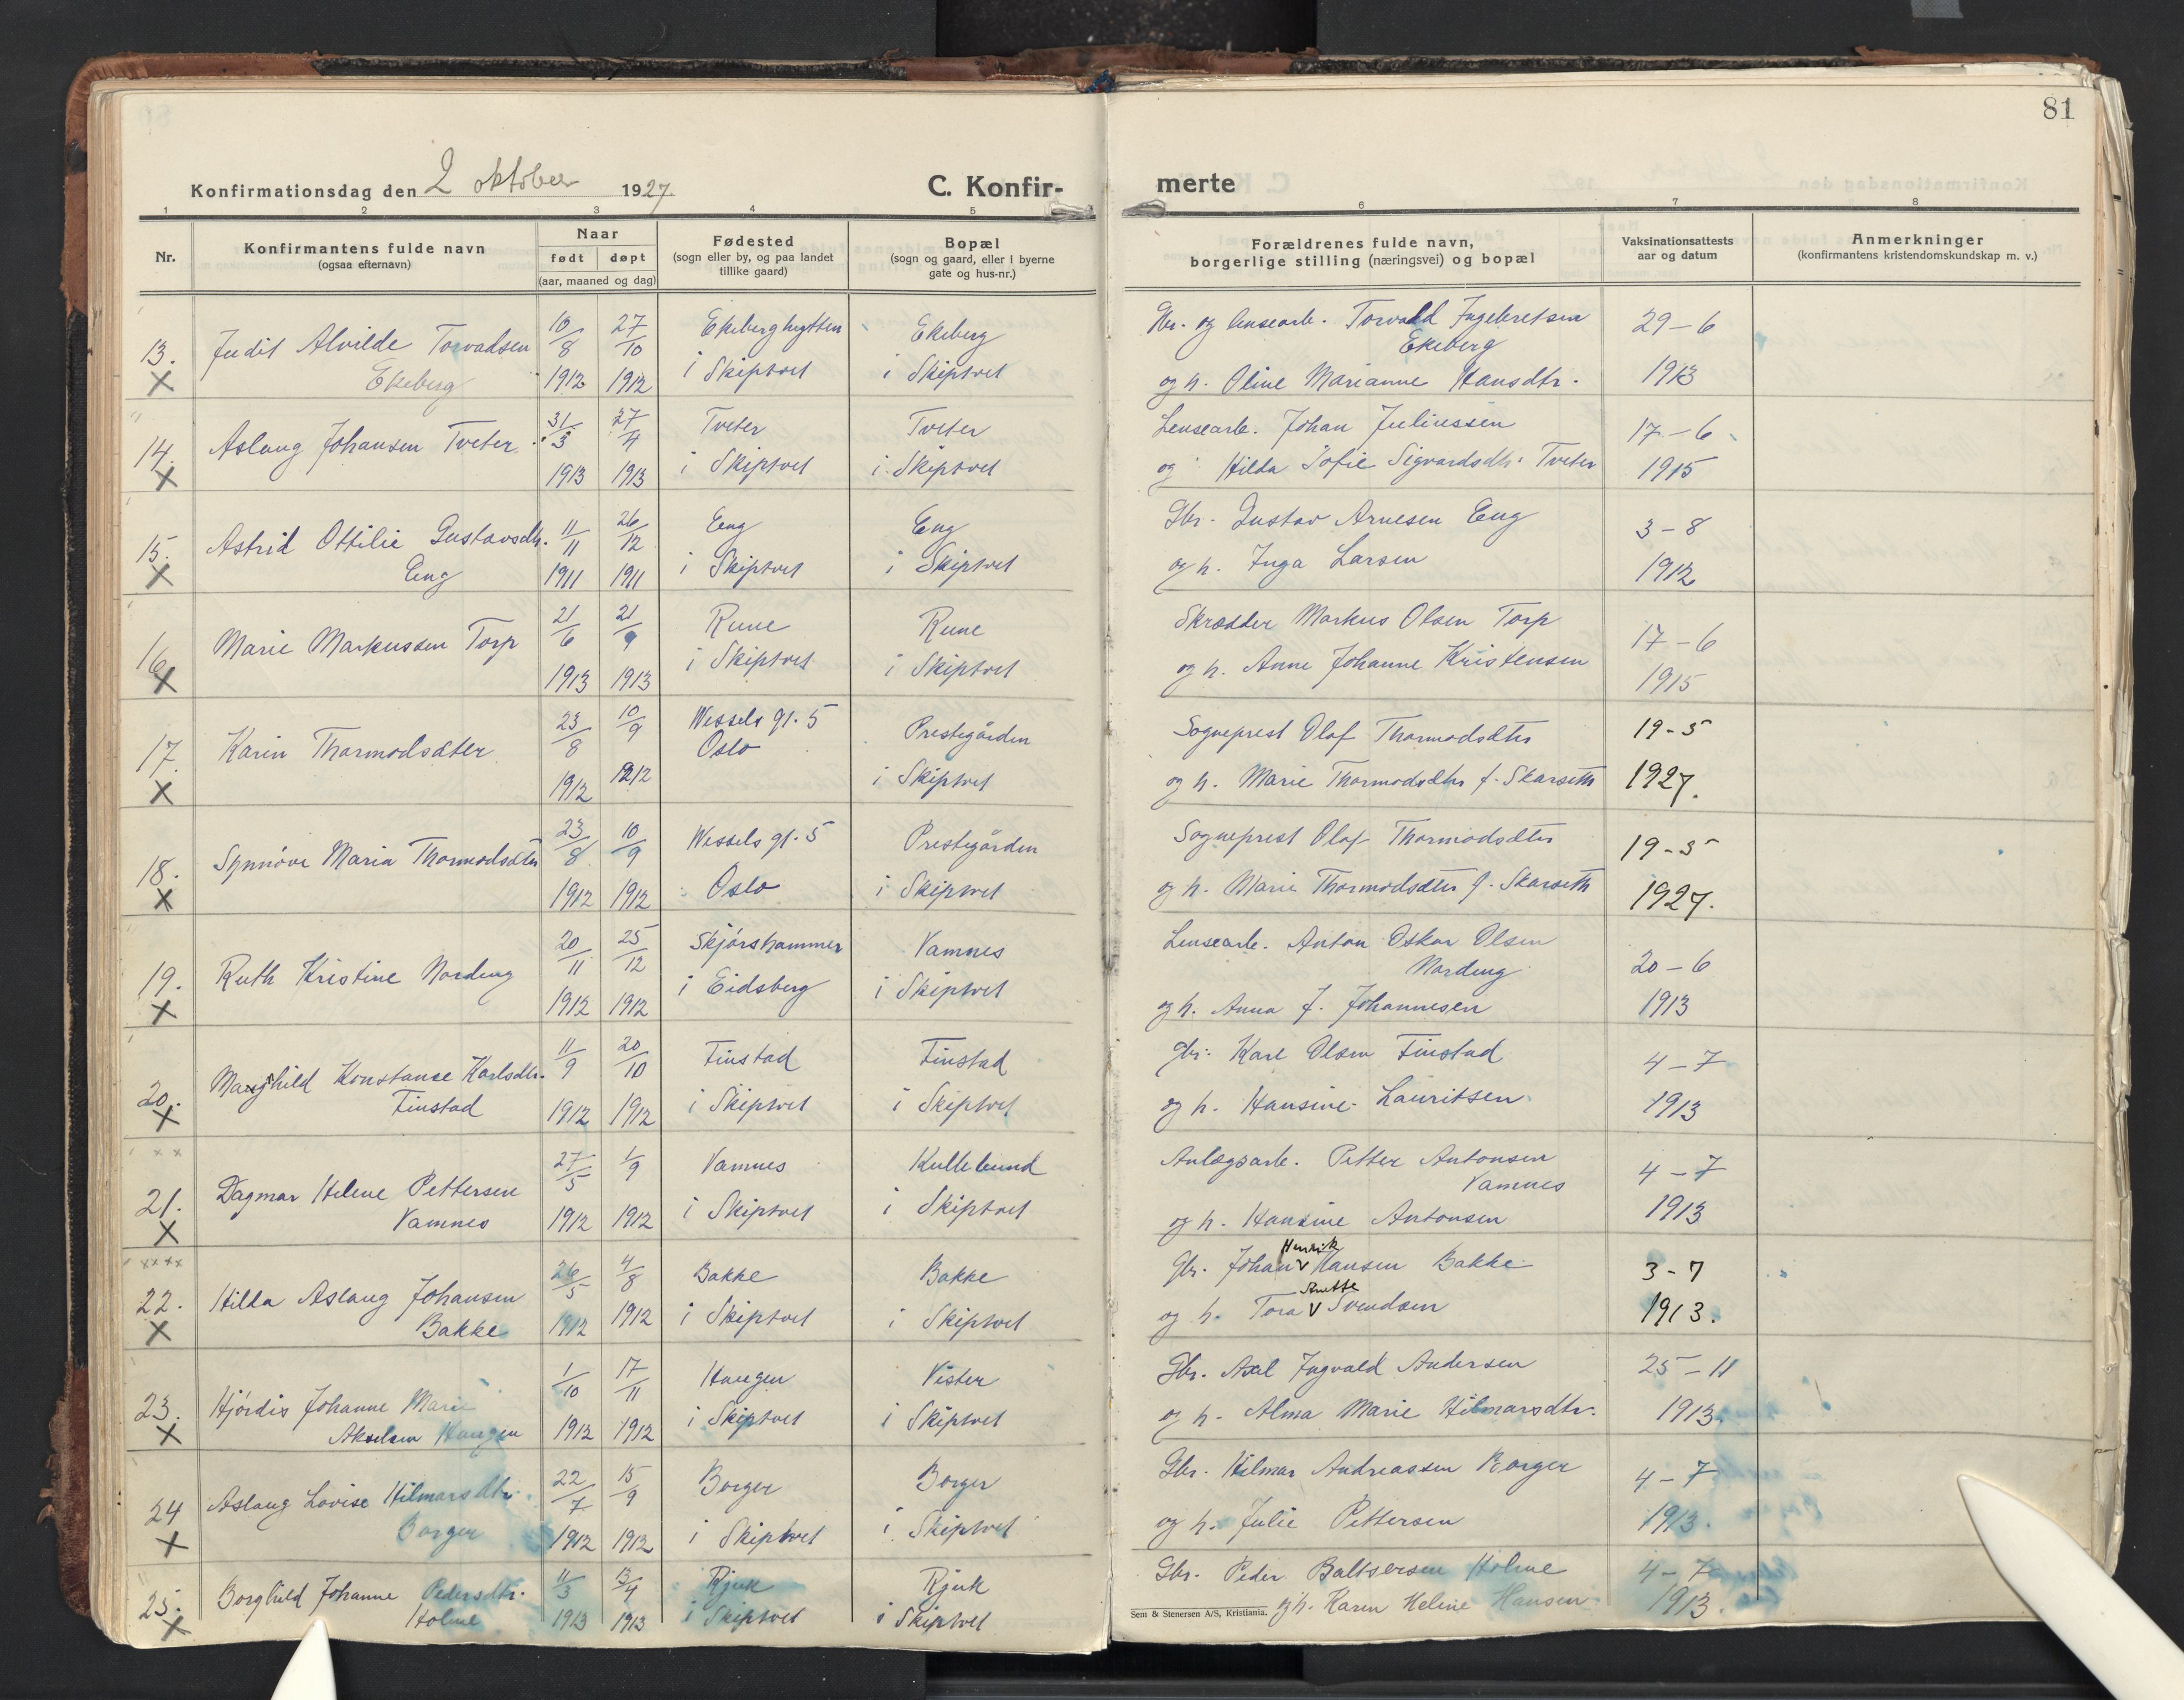 81
Konfirmationsdag den 2 oktober 1927.
C. Konfir-
merte
1 2 3 4 5 6 7 8
Nr.
Konfirmantens fulde navn
(ogsaa efternavn)
Naar
født døpt
(aar, maaned og dag)
Fødested
(sogn eller by, og paa landet
tillike gaard)
Bopæl
(sogn og gaard, eller i byerne
gate og hus-nr.)
Forældrenes fulde navn,
borgerlige stilling (næringsvei) og bopæl
Vaksinationsattests
aar og datum
Anmerkninger
(konfirmantens kristendomskundskap m. v.)
13. Judit Alvilde Torvadsen 10/8 27/10 Ekeberghytten Ekeberg Gbr. og lensearb. Torvald Ingebretsen 29-6
Ekeberg
X Ekeberg 1912 1912 i Skiptvet i Skiptvet og h. Oline Marianne Hansdtr. 1913
14. Aslaug Johansen Tveter 31/3 27/4 Tveter Tveter Lensearb. Johan Juliussen 17-6
X 1913 1913 i Skiptvet i Skiptvet og Hilda Sofie Sigvardsdtr. Tveter 1915
15. Astrid Ottilie Gustavsdtr. 11/11 26/12 Eng Eng Gbr. Gustav Arnesen Eng 3-8
X Eng 1911 1911 i Skiptvet i Skiptvet og h. Inga Larsen 1912
16. Marie Markussen Torp 21/6 21/9 Rune Rune Skrædder Markus Olsen Torp 17-6
X 1913 1913 i Skiptvet i Skiptvet og h. Anne Johanne Kristensen 1915
17. Karin Thormodsæter 23/8 10/9 Wessels gt. 5 Prestegården Sogneprest Olaf Thormodsæter 19-5
Oslo
X 1912 1912 i Skiptvet og h. Marie Thormodsæter f. Skarseth 1927.
18. Synnöve Maria Thormodsæter 23/8 10/9 Wessels gt. 5 Prestegården Sogneprest Olaf Thormodsæter 19-5
X 1912 1912 Oslo i Skiptvet og h. Marie Thormodsæter f. Skarseth 1927.
19. Ruth Kristine Nordeng 20/11 25/12 Skjörshammer Vamnes Lensearb. Anton Oskar Olsen 20-6
Nordeng
X 1912 1912 i Eidsberg i Skiptvet og h. Anna f. Johannesen 1913
20. Magnhild Konstanse Karlsdtr. 11/9 20/10 Finstad Finstad Gbr. Karl Olsen Finstad 4-7
X Finstad 1912 1912 i Skiptvet i Skiptvet og h. Hansine Lauritsen 1913
21. Dagmar Helene Pettersen 27/5 1/9 Vamnes Kullebund Anlægsarb. Petter Antonsen 4-7
Vamnes
X Vamnes 1912 1912 i Skiptvet i Skiptvet og h. Hansine Antonsen 1913
22. Hilda Aslaug Johansen 26/5 4/8 Bakke Bakke Gbr. Johan Henrik Hansen Bakke 3-7
X Bakke 1912 1912 i Skiptvet i Skiptvet og h. Tora Anette Svendsen 1913.
23. Hjördis Johanne Marie 1/10 17/11 Haugen Vister Gbr. Axel Ingvald Andersen 25-11
X Akselsen Haugen 1912 1912 i Skiptvet i Skiptvet og h. Alma Marie Hilmarsdtr. 1913.
24 Aslaug Lovise Hilmarsdtr. 22/7 15/9 Borger Borger Gbr. Hilmar Andreassen Borger 4-7
X Borger 1912 1912 i Skiptvet i Skiptvet og h. Julie Pettersen 1913.
25. Borghild Johanne Pedersdtr. 11/3 13/4 Rjuk Rjuk Gbr. Peder Baltsersen Holme 4-7
X Holme 1913 1913 i Skiptvet i Skiptvet og h. Karen Helene Hansen 1913.
Sem & Stenersen A/S, Kristiania.